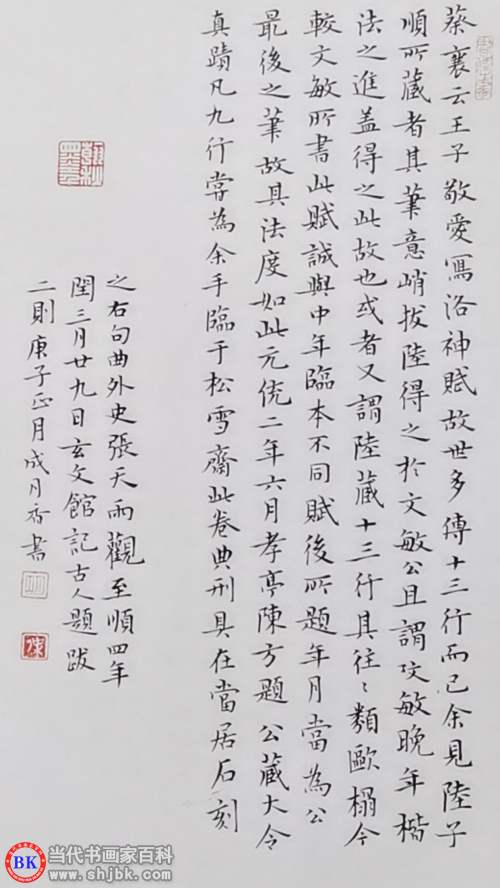 蔡襄云王子敬愛寫洛神賦故世多傳十三行而已余見陸子
順所藏者其筆意峭拔陸得之於文敏公且謂文敏晚年楷
法之進蓋得之此故也或者又謂陸藏十三行具往々類歐榻今
較文敏所書此賦誠與中年臨本不同賦後所題年月當為公
最後之筆故具法度如此元統二年六月孝亭陳方題 公藏大令
真蹟凡九行嘗為余手臨于松雪齋此卷典刑具在當居石刻
之右句曲外史張天雨觀至順四年
閏三月廿九日玄文館記古人題跋
二則庚子正月成月香書
BK
当代书画家百科
www.shjbk.com